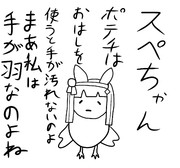 スペちゃん
ポテチは
おはしを
使うと手が汚れないのよ
まあ私は
手が羽なのよね